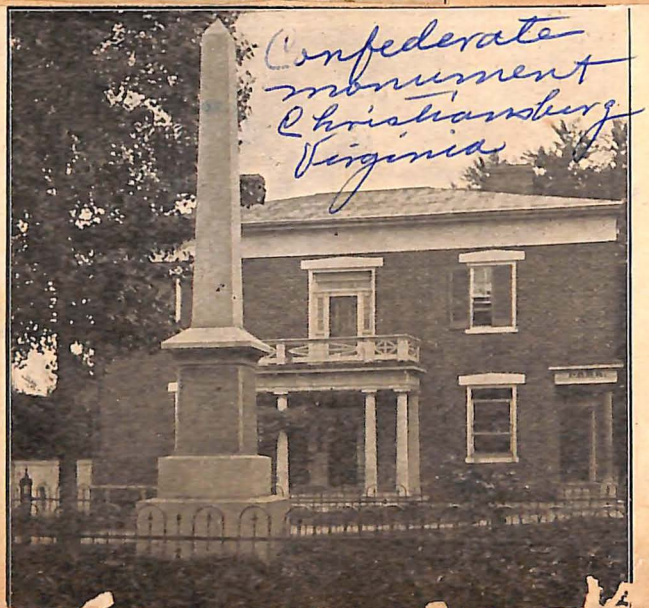 Confederate
monument
Christiansburg
Virginia